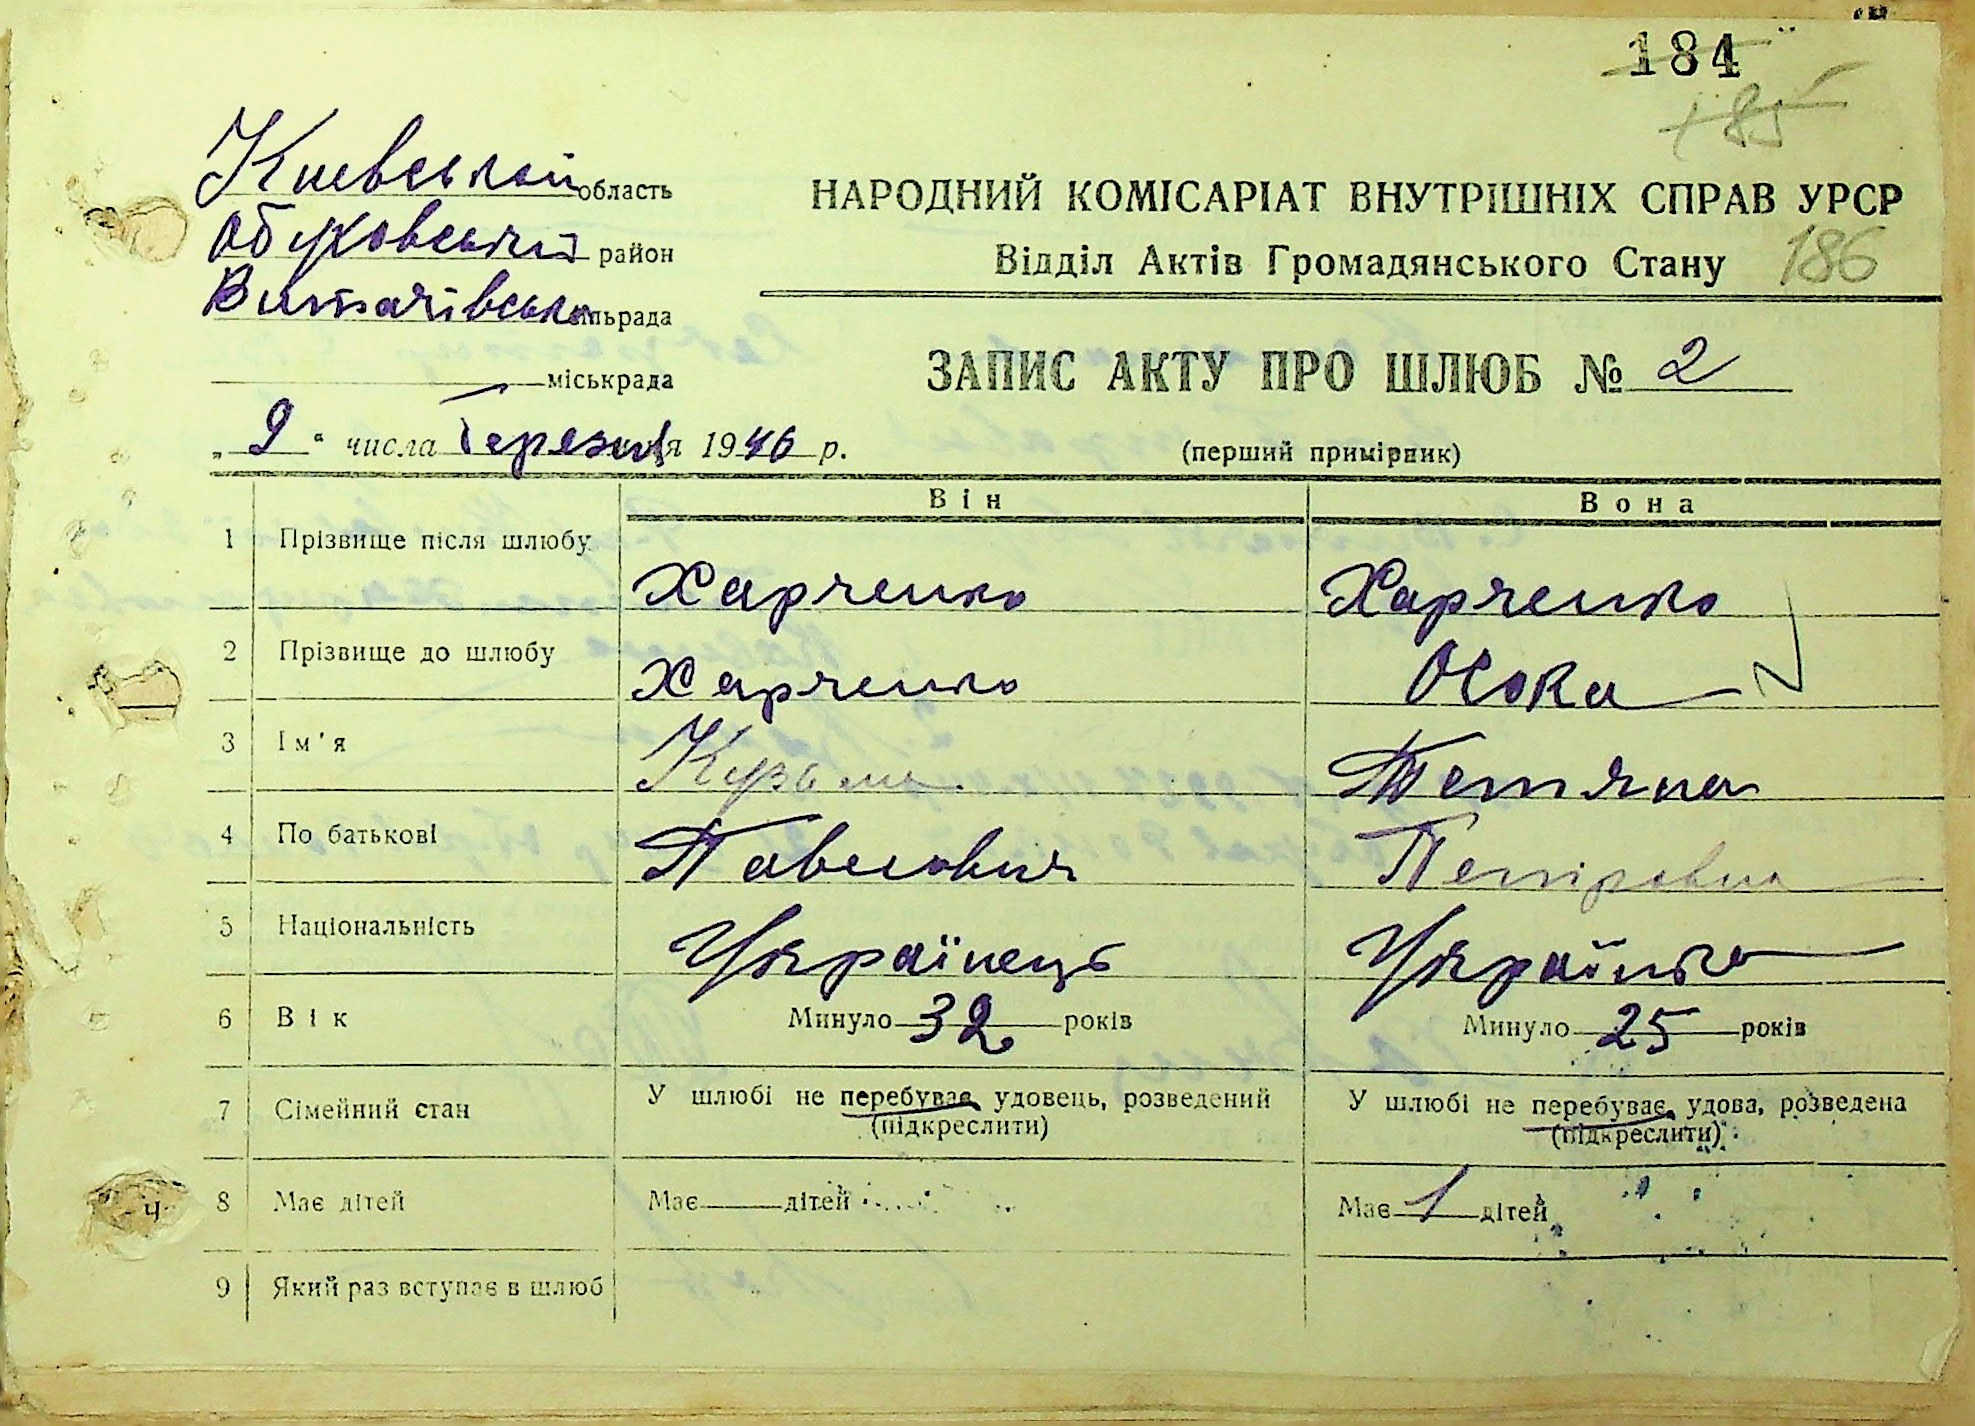 184
185
Киевськой область
НАРОДНИЙ КОМІСАРІАТ ВНУТРІШНІХ СПРАВ УРСР
Обуховський район
Відділ Актів Громадянського Стану 186
Витачівська сільрада
міськрада
ЗАПИС АКТУ ПРО ШЛЮБ № 2
„9" числа Березня 1946 р.
(перший примірник)
Він Вона
1 Прізвище після шлюбу Харченко Харченко
2 Прізвище до шлюбу Харченко Оска
3 Ім'я Кузьма Тетяна
4 По батькові Павлович Петровна
5 Національність Українець Українка
6 Вік Минуло 32 років Минуло 25 років
7 Сімейний стан У шлюбі не перебуває, удовець, розведений У шлюбі не перебуває, удова, розведена
(підкреслити) (підкреслити)
8 Має дітей Має дітей Має 1 дітей
9 Який раз вступає в шлюб